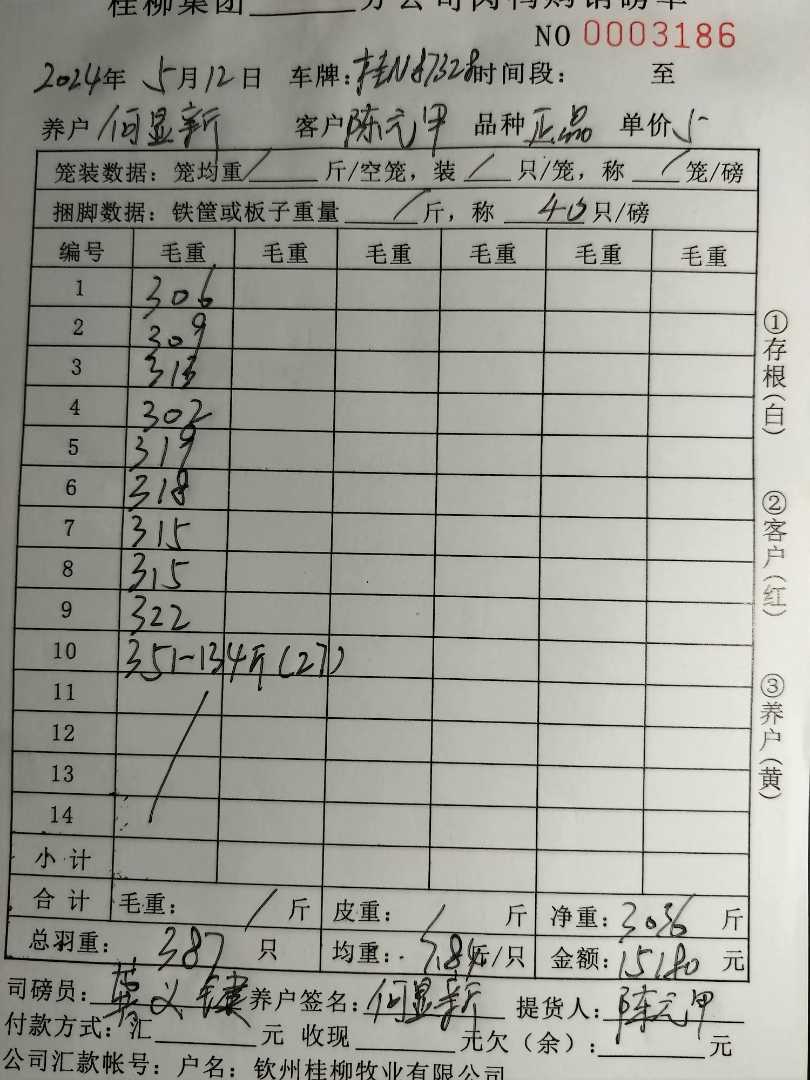 桂柳集团______分公司肉鸭购销磅单
NO 0003186
2024年 5月12日 车牌:桂N87328 时间段: 至
养户 何显新 客户 陈元甲 品种 正品 单价 5-
笼装数据: 笼均重 / 斤/空笼, 装 / 只/笼, 称 / 笼/磅
捆脚数据: 铁筐或板子重量 / 斤, 称 40 只/磅
编号 毛重 毛重 毛重 毛重 毛重 毛重
1 306
2 309
3 313
4 302
5 319
6 318
7 315
8 315
9 322
10 351-134斤(27)
11
12
13
14
小计
合计 毛重: / 斤 皮重: / 斤 净重: 3036 斤
总羽重: 387 只 均重: 7.84 斤/只 金额: 15180 元
司磅员: 养户签名: 何显新 提货人: 陈元甲
付款方式: 汇______元 收现______元欠(余):______元
公司汇款帐号: 户名: 钦州桂柳牧业有限公司
①存根(白)
②客户(红)
③养户(黄)